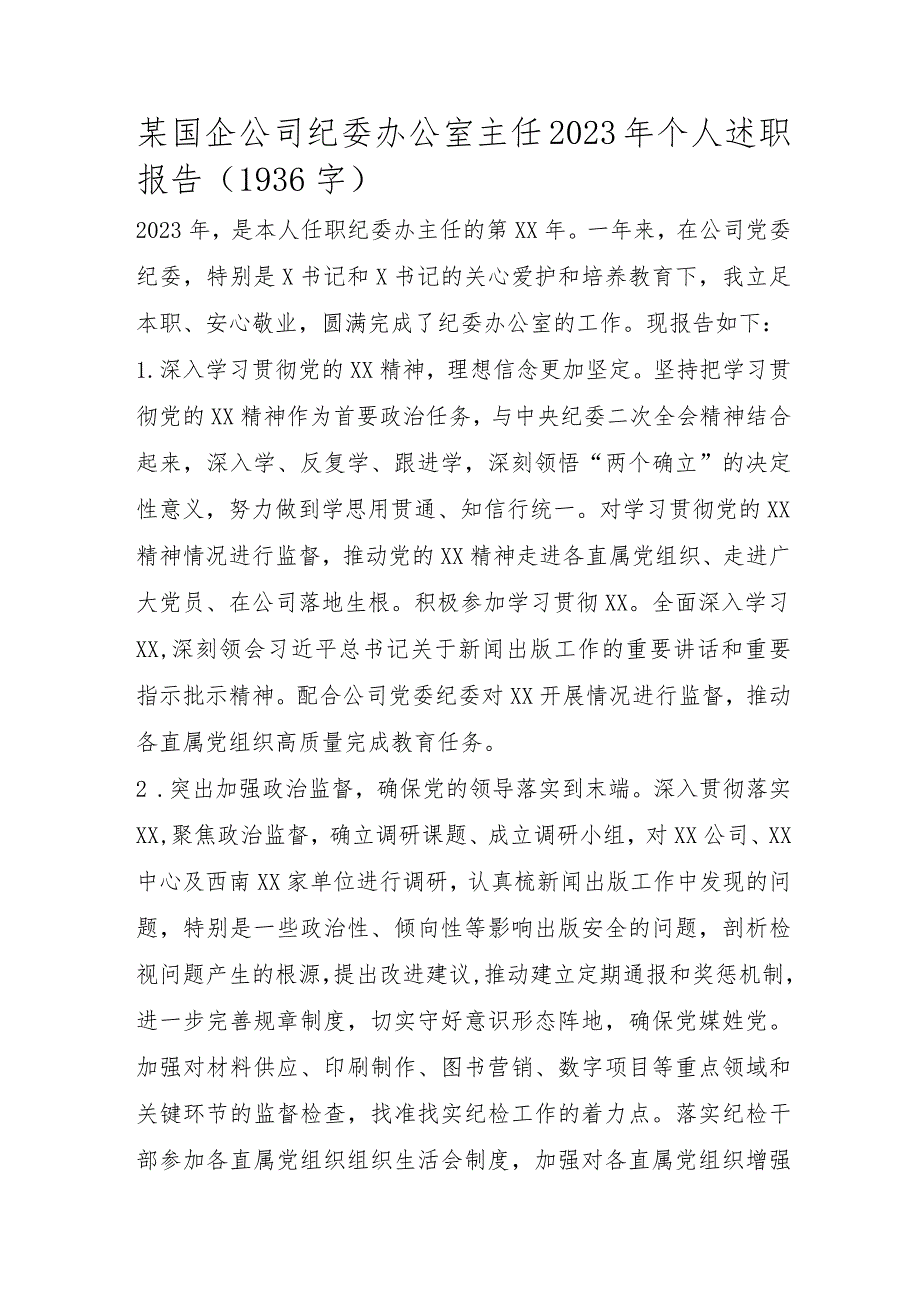 某国企公司纪委办公室主任2023年个人述职
报告（1936字）
2023年，是本人任职纪委办主任的第XX年。一年来，在公司党委
纪委，特别是X书记和X书记的关心爱护和培养教育下，我立足
本职、安心敬业，圆满完成了纪委办公室的工作。现报告如下：
1.深入学习贯彻党的XX精神，理想信念更加坚定。坚持把学习贯
彻党的XX精神作为首要政治任务，与中央纪委二次全会精神结合
起来，深入学、反复学、跟进学，深刻领悟“两个确立”的决定
性意义，努力做到学思用贯通、知信行统一。对学习贯彻党的XX
精神情况进行监督，推动党的XX精神走进各直属党组织、走进广
大党员、在公司落地生根。积极参加学习贯彻XX。全面深入学习
XX,深刻领会习近平总书记关于新闻出版工作的重要讲话和重要
指示批示精神。配合公司党委纪委对XX开展情况进行监督，推动
各直属党组织高质量完成教育任务。
2 .突出加强政治监督，确保党的领导落实到末端。深入贯彻落实
XX,聚焦政治监督，确立调研课题、成立调研小组，对XX公司、XX
中心及西南XX家单位进行调研，认真梳新闻出版工作中发现的问
题，特别是一些政治性、倾向性等影响出版安全的问题，剖析检
视问题产生的根源,提出改进建议,推动建立定期通报和奖惩机制，
进一步完善规章制度，切实守好意识形态阵地，确保党媒姓党。
加强对材料供应、印刷制作、图书营销、数字项目等重点领域和
关键环节的监督检查，找准找实纪检工作的着力点。落实纪检干
部参加各直属党组织组织生活会制度，加强对各直属党组织增强